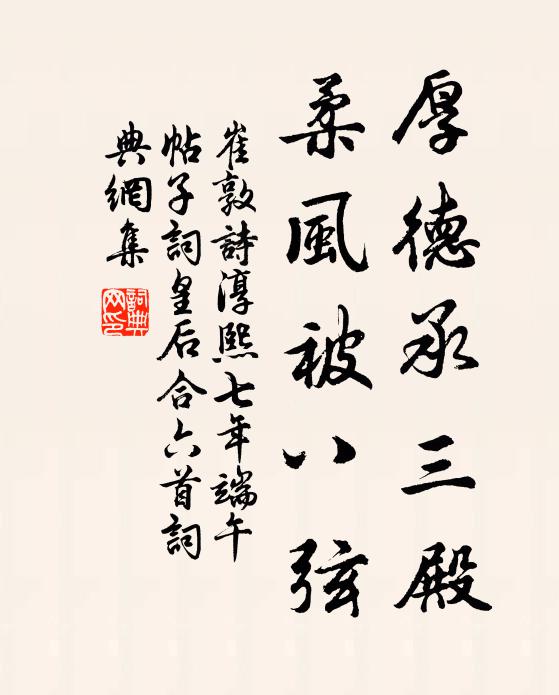 厚德承三殿
柔風被八弦
崔敦詩淳熙七年端午
帖子詞皇后合六首詞
典網集
詞典網印